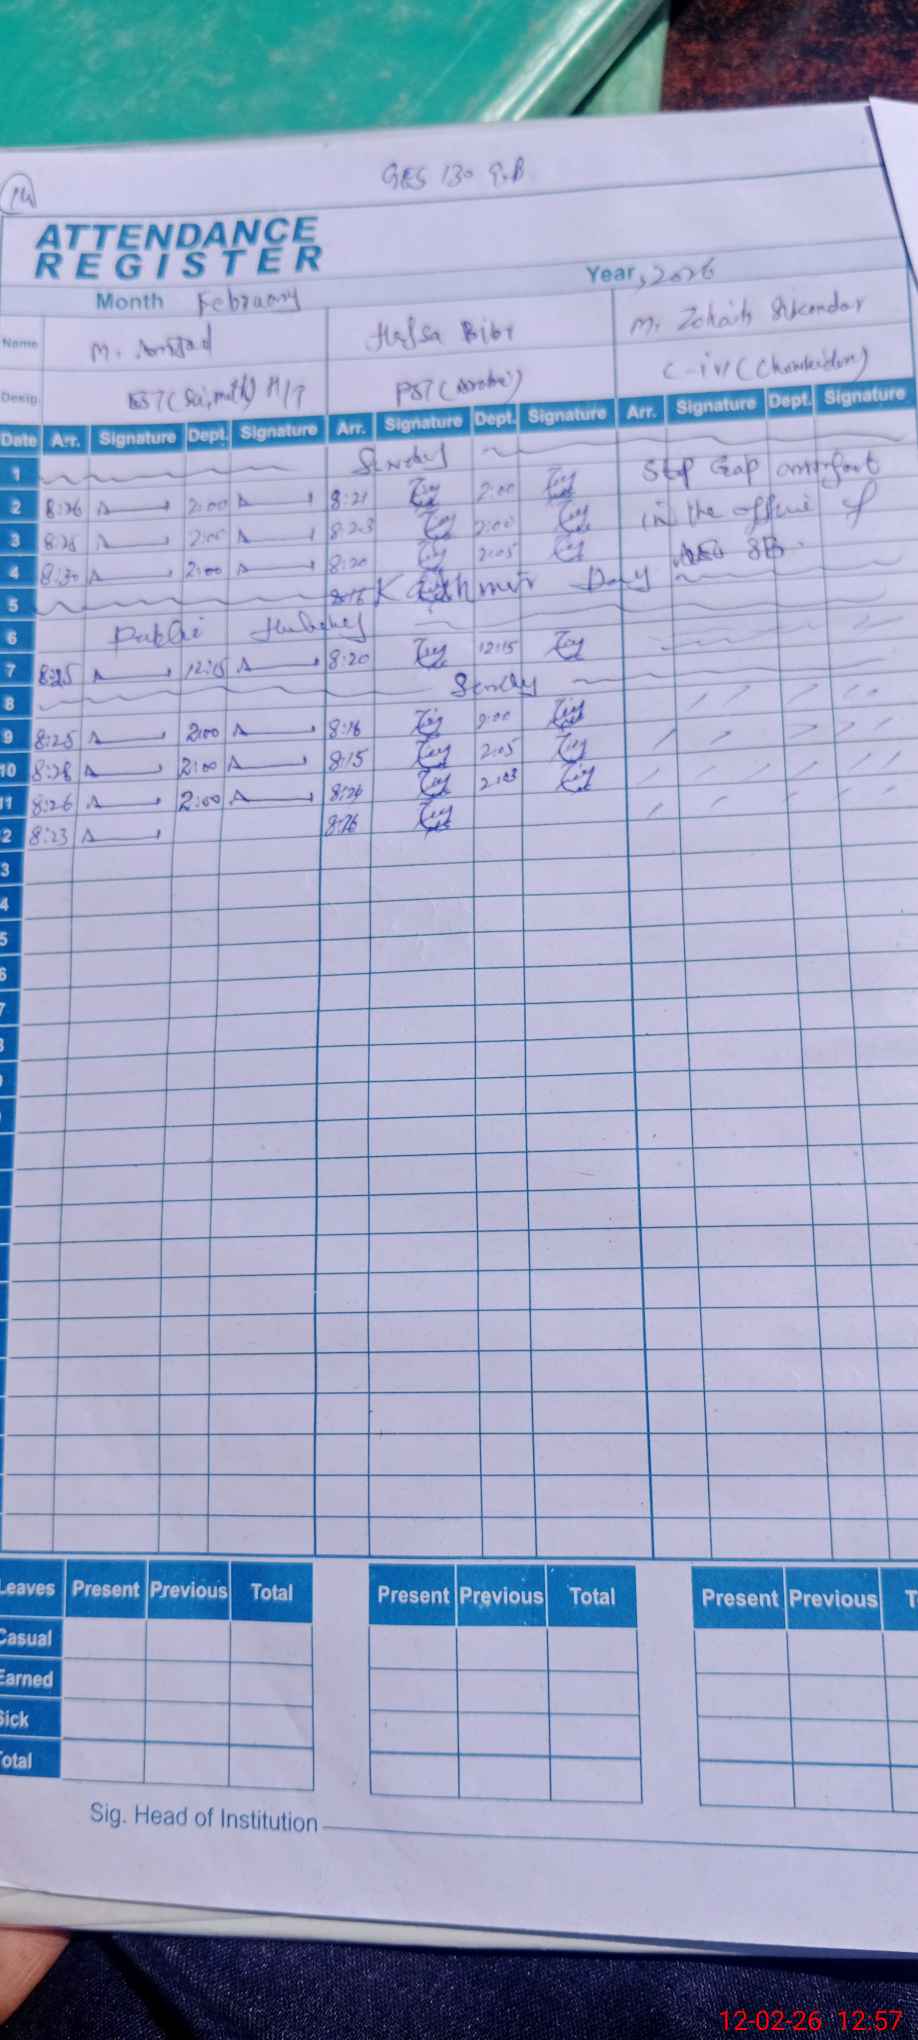 14
GES 130 G.B
ATTENDANCE
REGISTER
Month February Year, 2026
Name M. Amjad Hafsa Bibi M. Zohaib Sikandar
Desig. EST (Sci, math) PST C-iv (Chowkidar)
Date Arr. Signature Dept. Signature Arr. Signature Dept. Signature Arr. Signature Dept. Signature
1 Sunday Stop Gap
2 8:26 2:00 8:21 2:00 in the office of
3 8:28 2:00 8:23 2:00
4 8:30 2:00 8:20 2:05
5 Kashmir Day
6 Public Holiday
7 8:25 12:15 8:20 12:15
8 Sunday
9 8:25 2:00 8:18 2:00
10 8:28 2:00 8:15 2:05
11 8:26 2:00 8:26 2:03
2 8:23 8:26
3
4
5
6
7
8
Leaves Present Previous Total Present Previous Total Present Previous T
Casual
Earned
Sick
Total
Sig. Head of Institution
12-02-26 12:57